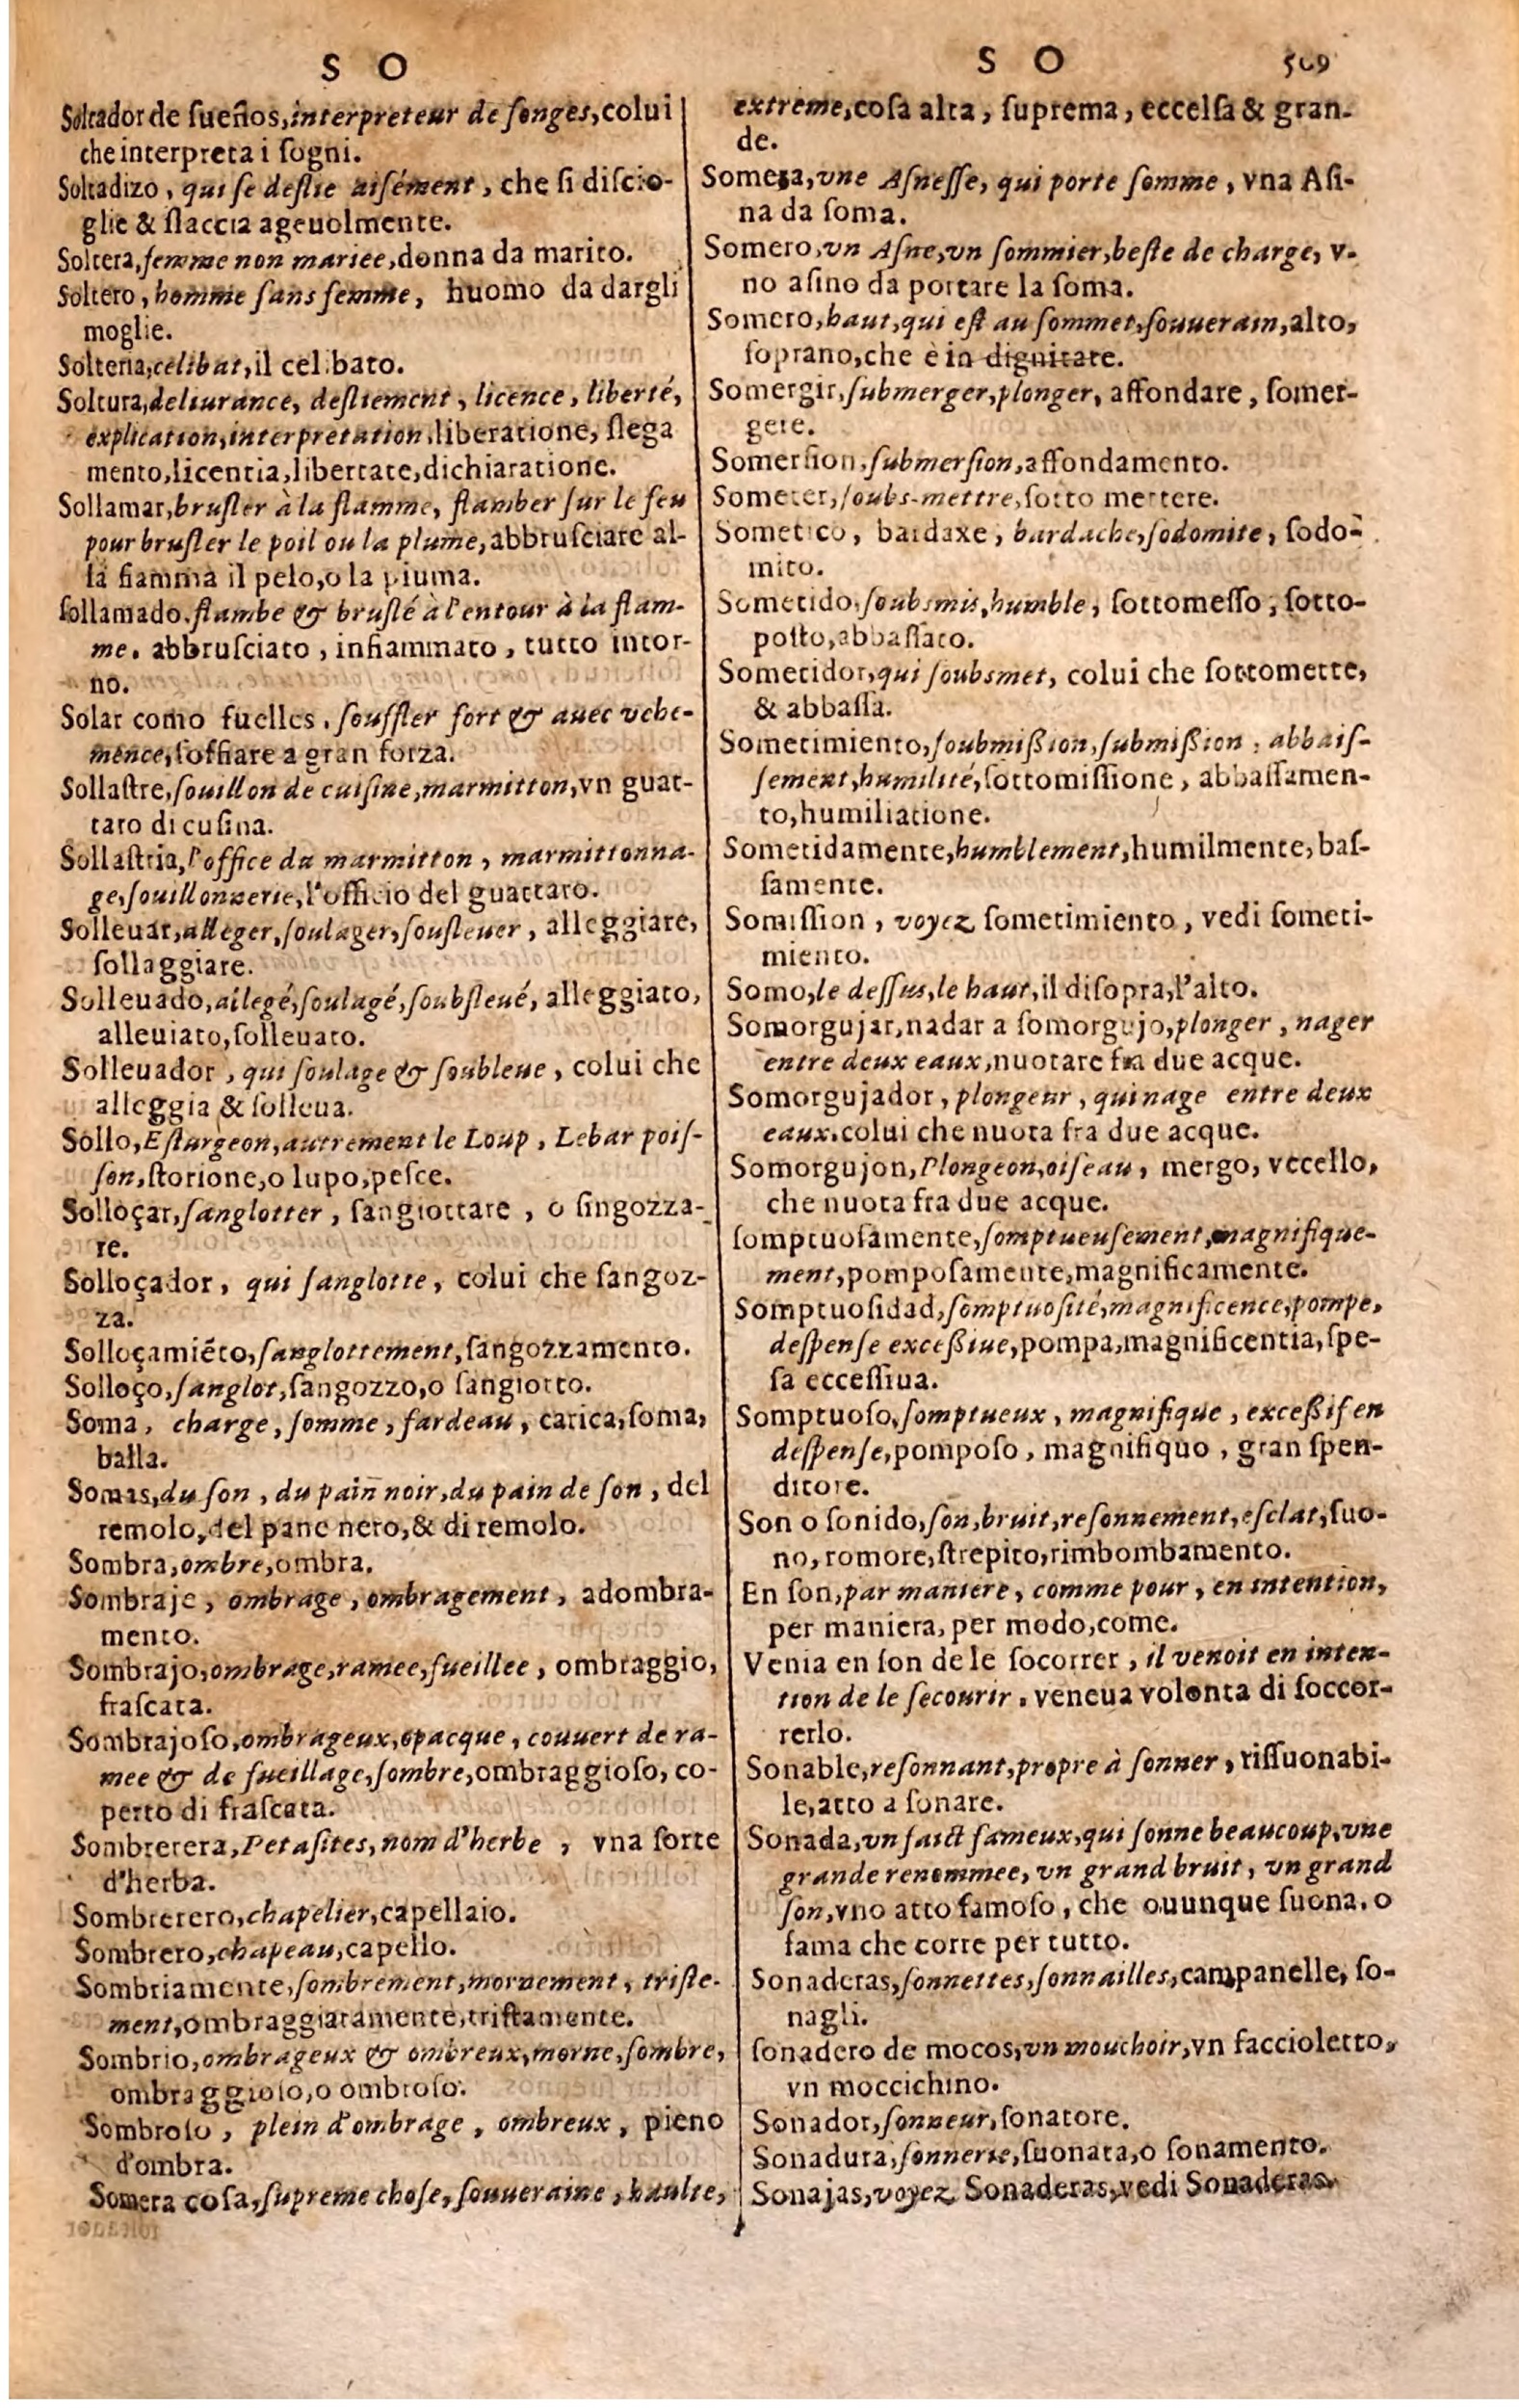 S O
Soltador de sueños, interpreteur de songes, colui
che interpreta i sogni.
Soltadizo, qui se deslie aisément, che si discio-
glie & slaccia ageuolmente.
Soltera, femme non mariee, donna da marito.
Soltero, homme sans femme, huomo da dargli
moglie.
Solteria, celibat, il celibato.
Soltura, deliurance, desliement, licence, liberté,
explication, interpretation, liberatione, slega
mento, licentia, libertate, dichiaratione.
Sollamar, brusler à la flamme, flamber sur le feu
pour brusler le poil ou la plume, abbrusciare al-
la fiamma il pelo, o la piuma.
sollamado, flambe & bruslé à l'entour à la flam-
me, abbrusciato, infiammato, tutto intor-
no.
Solar como fuelles, souffler fort & auec vehe-
mence, soffiare a gran forza.
Sollastre, souillon de cuisine, marmitton, vn guat-
taro di cusina.
Sollastria, l'office du marmitton, marmittonna-
ge, souillonnerie, l'officio del guattaro.
Solleuar, alleger, soulager, sousleuer, alleggiare,
sollaggiare.
Solleuado, allegé, soulagé, soubsleué, alleggiato,
alleuiato, solleuato.
Solleuador, qui soulage & soubleue, colui che
alleggia & solleua.
Sollo, Esturgeon, autrement le Loup, Lebar pois-
son, storione, o lupo, pesce.
Solloçar, sanglotter, sangiottare, o singozza-
re.
Solloçador, qui sanglotte, colui che sangoz-
za.
Solloçamiẽto, sanglottement, sangozzamento.
Solloço, sanglot, sangozzo, o sangiotto.
Soma, charge, somme, fardeau, carica, soma,
balla.
Somas, du son, du pain noir, du pain de son, del
remolo, del pane nero, & di remolo.
Sombra, ombre, ombra.
Sombraje, ombrage, ombragement, adombra-
mento.
Sombrajo, ombrage, ramee, fueillee, ombraggio,
frascata.
Sombrajoso, ombrageux, opacque, couuert de ra-
mee & de fueillage, sombre, ombraggioso, co-
perto di frascata.
Sombrerera, Petasites, nom d'herbe, vna sorte
d'herba.
Sombrerero, chapelier, capellaio.
Sombrero, chapeau, capello.
Sombriamente, sombrement, mornement, triste-
ment, ombraggiatamente, tristamente.
Sombrio, ombrageux & ombreux, morne, sombre,
ombraggioso, o ombroso.
Sombroso, plein d'ombrage, ombreux, pieno
d'ombra.
Somera cosa, supreme chose, souueraine, haulte,
S O 509
extreme, cosa alta, suprema, eccelsa & gran-
de.
Somera, vne Asnesse, qui porte somme, vna Asi-
na da soma.
Somero, vn Asne, vn sommier, beste de charge, v-
no asino da portare la soma.
Somero, haut, qui est au sommet, souuerain, alto,
soprano, che è in dignitate.
Somergir, submerger, plonger, affondare, somer-
gere.
Somersion, submersion, affondamento.
Someter, soubs-mettre, sotto mettere.
Sometico, bardaxe, bardache, sodomite, sodo-
mito.
Sometido, soubsmis, humble, sottomesso, sotto-
posto, abbassato.
Sometidor, qui soubsmet, colui che sottomette,
& abbassa.
Sometimiento, soubmißion, submißion, abbais-
sement, humilité, sottomissione, abbassamen-
to, humiliatione.
Sometidamente, humblement, humilmente, bas-
samente.
Somission, voyez sometimiento, vedi someti-
miento.
Somo, le dessus, le haut, il disopra, l'alto.
Somorgujar, nadar a somorgujo, plonger, nager
entre deux eaux, nuotare fra due acque.
Somorgujador, plongeur, qui nage entre deux
eaux, colui che nuota fra due acque.
Somorgujon, Plongeon, oiseau, mergo, vccello,
che nuota fra due acque.
somptuosamente, somptueusement, magnifique-
ment, pomposamente, magnificamente.
Somptuosidad, somptuosité, magnificence, pompe,
despense exceßiue, pompa, magnificentia, spe-
sa eccessiua.
Somptuoso, somptueux, magnifique, exceßif en
despense, pomposo, magnifiquo, gran spen-
ditore.
Son o sonido, son, bruit, resonnement, esclat, suo-
no, romore, strepito, rimbombamento.
En son, par maniere, comme pour, en intention,
per maniera, per modo, come.
Venia en son de le socorrer, il venoit en inten-
tion de le secourir, veneua volonta di soccor-
rerlo.
Sonable, resonnant, propre à sonner, rissuonabi-
le, atto a sonare.
Sonada, vn faict fameux, qui sonne beaucoup, vne
grande renommee, vn grand bruit, vn grand
son, vno atto famoso, che ouunque suona, o
fama che corre per tutto.
Sonaderas, sonnettes, sonnailles, campanelle, so-
nagli.
sonadero de mocos, vn mouchoir, vn faccioletto,
vn moccichino.
Sonador, sonneur, sonatore.
Sonadura, sonnerie, suonata, o sonamento.
Sonajas, voyez Sonaderas, vedi Sonaderas.